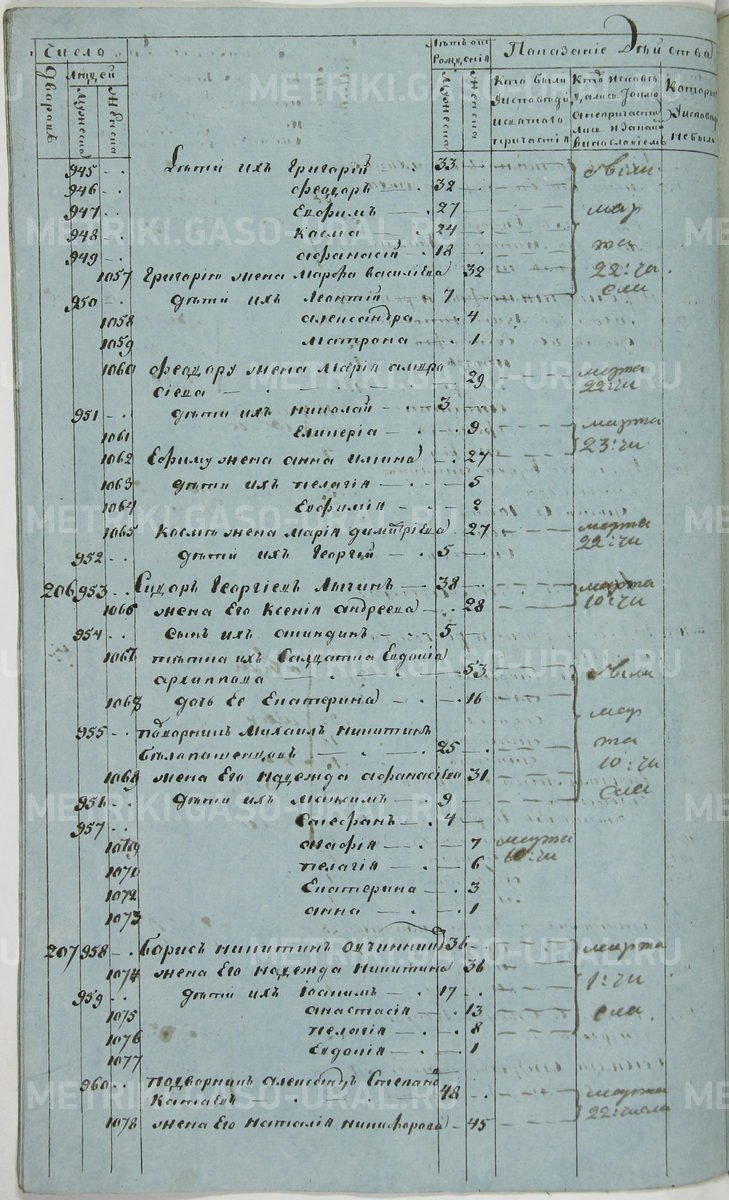 Числа
Лѣтъ отъ рожденія
Показаніе Дѣйства
Дворовъ
Людей
Мужеска
Женска
Мужеска
Женска
Кто были
у исповѣди
и святаго
причастія
945 Дѣти ихъ Григорій 33
946 Феодоръ 32
947 Евфимъ 27
948 Касма 24
949 Афанасій 18
1057 Григорію жена Марфа Василіева 32
22: чи
сла
950 дѣти ихъ Леонтій 7
1058 Александра 4
1059 Матрона 1
1060 Феодору жена Марія
сіева 29
марта
22: чи
951 дѣти ихъ Николай 3
1061 Гликерія 9
марта
23: чи
1062 Ефиму жена Анна Ильина 27
1063 дѣти ихъ Пелагія 5
1064 Евфимія
1065 Касмы жена Марія Димитріева 27
марта
22: чи
952 дѣти ихъ Георгій 5
206 953 Сидоръ Георгіевъ 38
марта
10: чи
1066 жена Его Ксенія Андреева 28
954 сынъ ихъ 5
1067 ихъ Салдатка Евдокія
Архиппова 53
1068 дочь Ее Екатерина 16
мар
та
10: чи
сла
955 подворникъ Михаилъ Никитинъ
Бѣлопашенцовъ 25
1069 жена Его Надежда Афанасіева 31
956 дѣти ихъ Максимъ 9
957 Стефанъ 4
7
марта
10: чи
1070 Пелагія 6
1072 Екатерина 3
1073 Анна 1
207 958 Борисъ Никитинъ Овчинниковъ 36
марта
1: чи
сла
1074 жена Его Надежда Никитина 36
959 дѣти ихъ Іоакимъ 17
1075 Анастасія 13
1076 Пелагія 8
1077 Евдокія 1
960 подворникъ Александръ Степановъ
Катаевъ 48
марта
22: числа
1078 жена Его Наталія Никифорова 45
METRIKI.GASO-URAL.RU